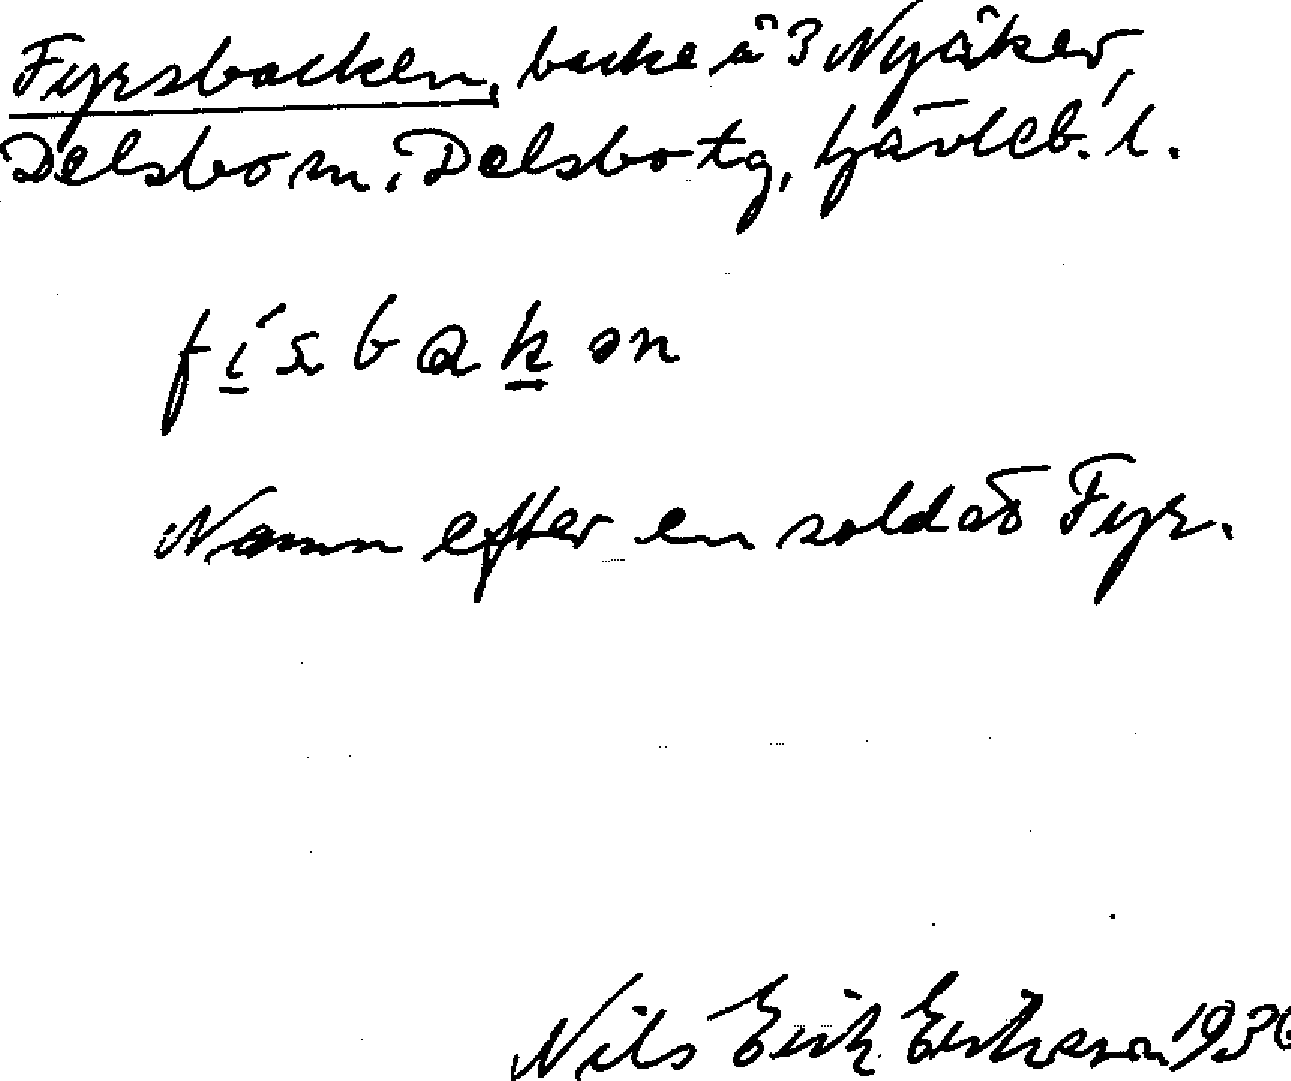 Fyrsbacken, backe å 3 Nyåker,
Delsbo sn, Delsbo tg, Gävleb. l.
Namn efter en soldat Fyr.
Nils Erik Eriksson 1936